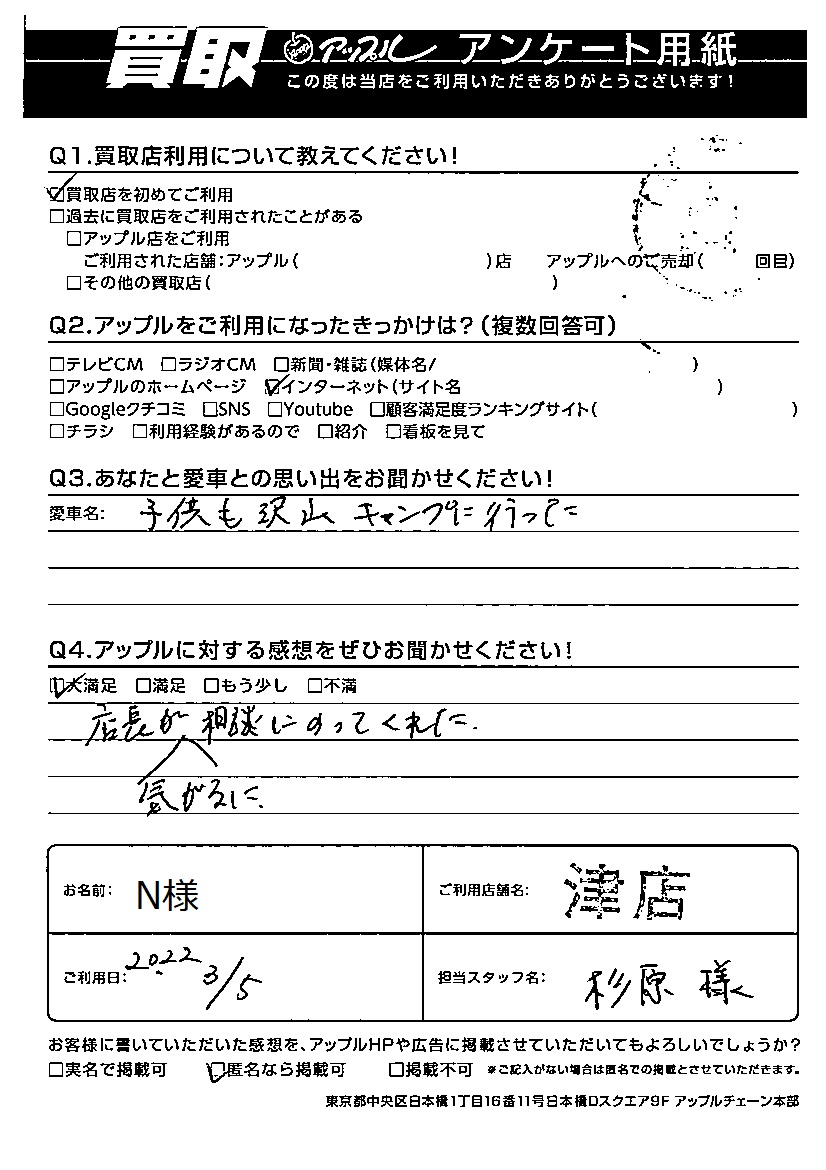 買取 アップル アンケート用紙
この度は当店をご利用いただきありがとうございます！
Q1.買取店利用について教えてください！
☑買取店を初めてご利用
□過去に買取店をご利用されたことがある
□アップル店をご利用
ご利用された店舗：アップル（　　　）店　アップルへのご売却（　　　回目）
□その他の買取店（　　　）
Q2.アップルをご利用になったきっかけは？（複数回答可）
□テレビCM　□ラジオCM　□新聞・雑誌（媒体名/　　　）
□アップルのホームページ　☑インターネット（サイト名　　　）
□Googleクチコミ　□SNS　□Youtube　□顧客満足度ランキングサイト（　　　）
□チラシ　□利用経験があるので　□紹介　□看板を見て
Q3.あなたと愛車との思い出をお聞かせください！
愛車名：　子供も沢山 キャンプに行った
Q4.アップルに対する感想をぜひお聞かせください！
☑大満足　□満足　□もう少し　□不満
店長が 相談にのってくれた.
気がるに.
お名前：　N様　ご利用店舗名：　津店
ご利用日：　2022 3/5　担当スタッフ名：　杉原 様
お客様に書いていただいた感想を、アップルHPや広告に掲載させていただいてもよろしいでしょうか？
□実名で掲載可　☑匿名なら掲載可　□掲載不可　※ご記入がない場合は匿名での掲載とさせていただきます。
東京都中央区日本橋1丁目16番11号日本橋Dスクエア9F アップルチェーン本部